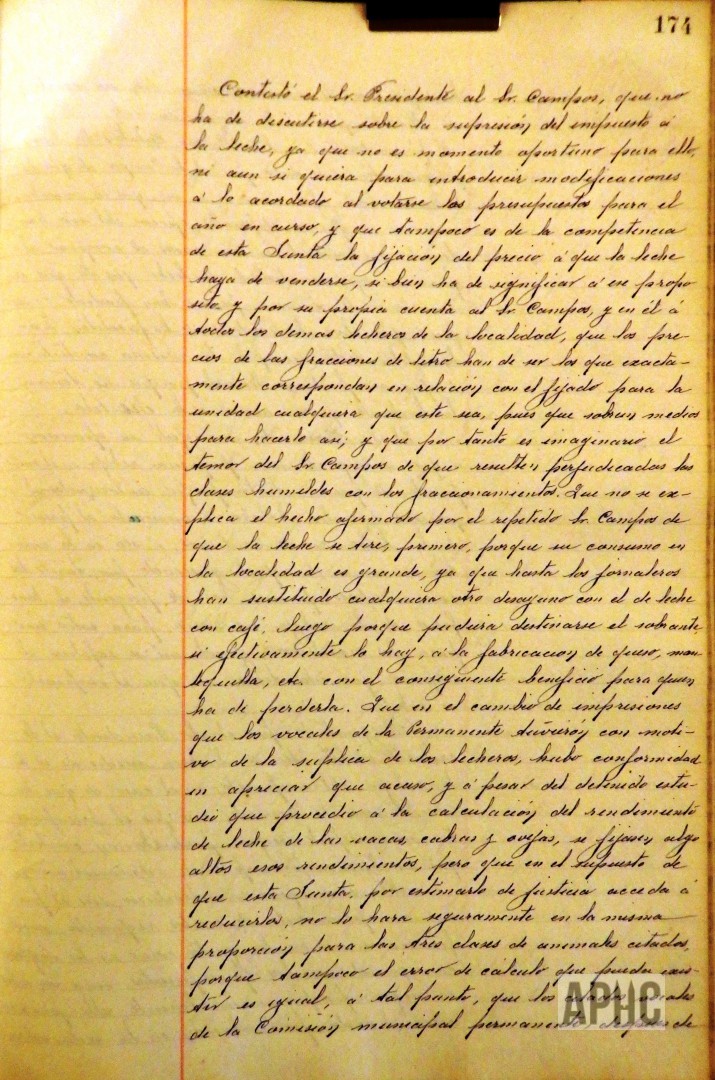 174
Contestó el Sr. Presidente al Sr. Campos, que no
ha de discutirse sobre la supresión del impuesto á
la leche, ya que no es momento oportuno para ello,
ni aun si quiera para introducir modificaciones
á lo acordado al votarse los presupuestos para el
año en curso, y que tampoco es de la competencia
de esta Junta la fijación del precio á que la leche
haya de venderse, si bien ha de significar á ese propo-
sito y por su propia cuenta al Sr. Campos, y en él á
todos los demas lecheros de la localidad, que los pre-
cios de las fracciones de litro han de ser los que exacta-
mente correspondan en relación con el fijado para la
unidad cualquiera que este sea, pues que sobran medios
para hacerlo asi; y que por tanto es imaginario el
temor del Sr. Campos de que resulten perjudicadas las
clases humildes con los fraccionamientos. Que no se ex-
plica el hecho afirmado por el repetido Sr. Campos de
que la leche se tire, primero, porque su consumo en
la localidad es grande, ya que hasta los jornaleros
han sustituido cualquiera otro desayuno con el de leche
con café, luego porque pudiera destinarse el sobrante,
si efectivamente lo hay, á la fabricacion de queso, man-
tequilla, etc. con el consiguiente beneficio para quien
ha de perderla. Que en el cambio de impresiones
que los vocales de la Permanente tuvieron con moti-
vo de la suplica de los lecheros, hubo conformidad
en apreciar que acaso, y á pesar del detenido estu-
dio que procedió á la calculación del rendimiento
de leche de las vacas, cabras y ovejas, se fijasen algo
altos esos rendimientos, pero que en el supuesto de
que esta Junta, por estimarlo de justicia acceda á
reducirlos, no lo hara seguramente en la misma
proporción para las tres clases de animales citados,
porque tampoco el error de cálculo que pueda exis-
tir es igual, á tal punto, que los vocales
de la Comisión municipal permanente despues de
APHC